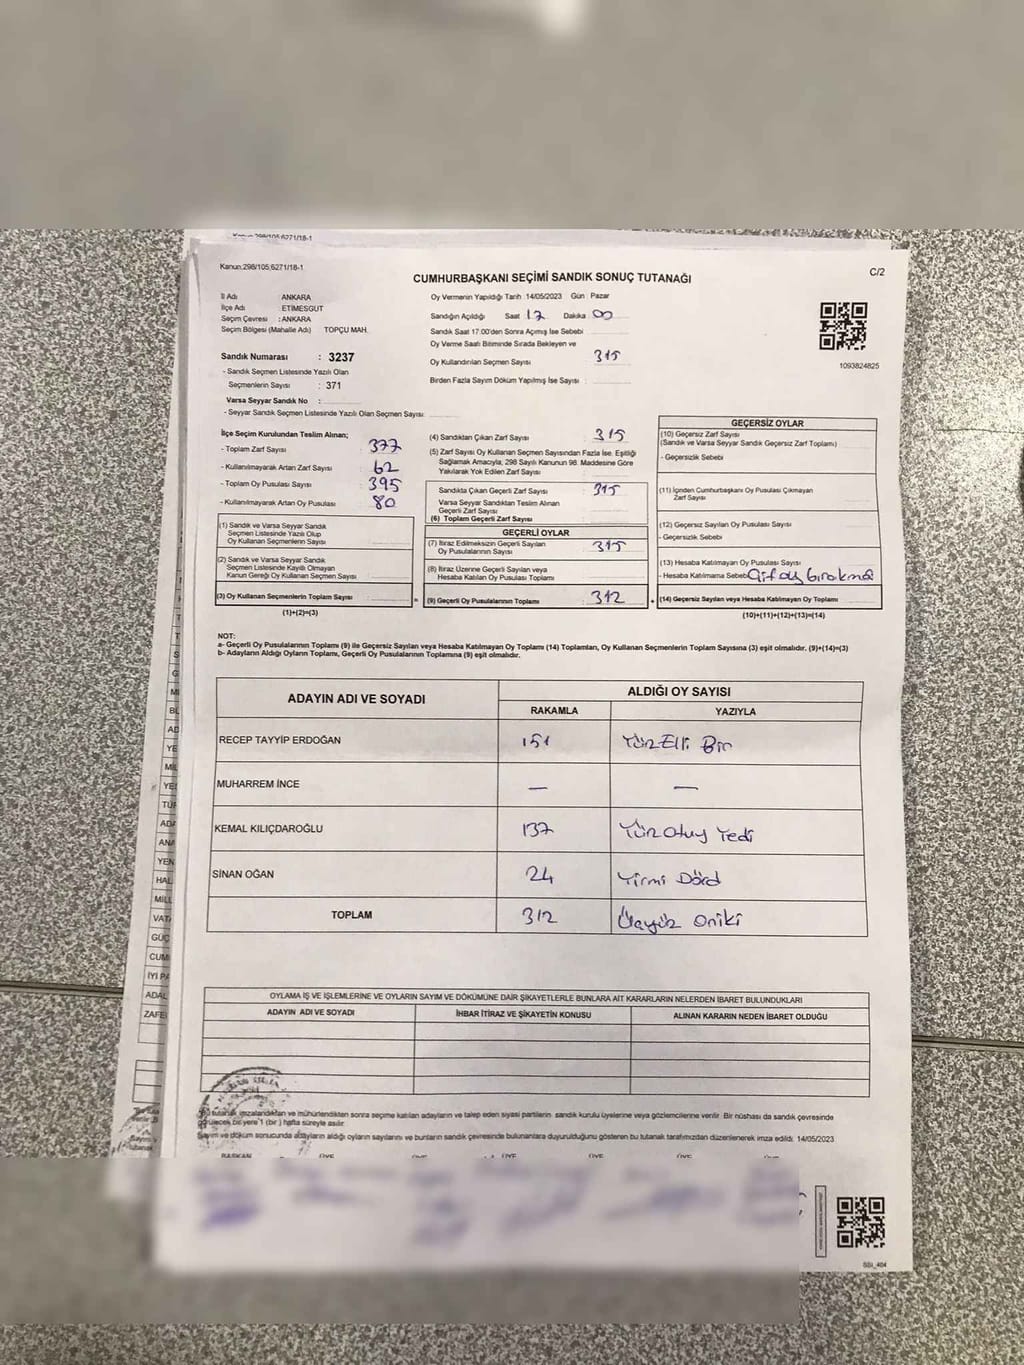 Kanun:298/105;6271/18-1
C/2
CUMHURBAŞKANI SEÇİMİ SANDIK SONUÇ TUTANAĞI
İl Adı : ANKARA
İlçe Adı : ETİMESGUT
Seçim Çevresi : ANKARA
Seçim Bölgesi (Mahalle Adı) TOPÇU MAH.
Sandık Numarası : 3237
- Sandık Seçmen Listesinde Yazılı Olan
Seçmenlerin Sayısı : 371
Varsa Seyyar Sandık No :
- Seyyar Sandık Seçmen Listesinde Yazılı Olan Seçmen Sayısı:
Oy Vermenin Yapıldığı Tarih :14/05/2023 Gün : Pazar
Sandığın Açıldığı Saat 17 Dakika 00
Sandık Saat 17:00'den Sonra Açımış İse Sebebi
Oy Verme Saati Bitiminde Sırada Bekleyen ve
Oy Kullandırılan Seçmen Sayısı 315
Birden Fazla Sayım Döküm Yapılmış İse Sayısı :
1093824825
İlçe Seçim Kurulundan Teslim Alınan;
- Toplam Zarf Sayısı : 377
- Kullanılmayarak Artan Zarf Sayısı : 62
- Toplam Oy Pusulası Sayısı : 395
- Kullanılmayarak Artan Oy Pusulası : 80
(1) Sandık ve Varsa Seyyar Sandık
Seçmen Listesinde Yazılı Olup
Oy Kullanan Seçmenlerin Sayısı :
(2) Sandık ve Varsa Seyyar Sandık
Seçmen Listesinde Kayıtlı Olmayan
Kanun Gereği Oy Kullanan Seçmen Sayısı :
(3) Oy Kullanan Seçmenlerin Toplam Sayısı :
(1)+(2)=(3)
(4) Sandıktan Çıkan Zarf Sayısı : 315
(5) Zarf Sayısı Oy Kullanan Seçmen Sayısından Fazla İse, Eşitliği
Sağlamak Amacıyla, 298 Sayılı Kanunun 98. Maddesine Göre
Yakılarak Yok Edilen Zarf Sayısı :
Sandıkta Çıkan Geçerli Zarf Sayısı : 315
Varsa Seyyar Sandıktan Teslim Alınan
Geçerli Zarf Sayısı :
(6) Toplam Geçerli Zarf Sayısı :
GEÇERLİ OYLAR
(7) İtiraz Edilmeksizin Geçerli Sayılan
Oy Pusulalarının Sayısı : 315
(8) İtiraz Üzerine Geçerli Sayılan veya
Hesaba Katılan Oy Pusulası Toplamı :
(9) Geçerli Oy Pusulalarının Toplamı : 312
GEÇERSİZ OYLAR
(10) Geçersiz Zarf Sayısı
(Sandık ve Varsa Seyyar Sandık Geçersiz Zarf Toplamı) :
- Geçersizlik Sebebi
(11) İçinden Cumhurbaşkanı Oy Pusulası Çıkmayan
Zarf Sayısı :
(12) Geçersiz Sayılan Oy Pusulası Sayısı :
- Geçersizlik Sebebi
(13) Hesaba Katılmayan Oy Pusulası Sayısı :
- Hesaba Katılmama Sebebi
(14) Geçersiz Sayılan veya Hesaba Katılmayan Oy Toplamı :
(10)+(11)+(12)+(13)=(14)
NOT:
a- Geçerli Oy Pusulalarının Toplamı (9) ile Geçersiz Sayılan veya Hesaba Katılmayan Oy Toplamı (14) Toplamları, Oy Kullanan Seçmenlerin Toplam Sayısına (3) eşit olmalıdır. (9)+(14)=(3)
b- Adayların Aldığı Oyların Toplamı, Geçerli Oy Pusulalarının Toplamına (9) eşit olmalıdır.
ADAYIN ADI VE SOYADI ALDIĞI OY SAYISI
RAKAMLA YAZIYLA
RECEP TAYYİP ERDOĞAN 151 YüzElli Bir
MUHARREM İNCE — —
KEMAL KILIÇDAROĞLU 137 Yüz Otuz Yedi
SİNAN OĞAN 24 Yirmi Dörd
TOPLAM 312 Üçyüz Oniki
OYLAMA İŞ VE İŞLEMLERİNE VE OYLARIN SAYIM VE DÖKÜMÜNE DAİR ŞİKAYETLERLE BUNLARA AİT KARARLARIN NELERDEN İBARET BULUNDUKLARI
ADAYIN ADI VE SOYADI İHBAR İTİRAZ VE ŞİKAYETİN KONUSU ALINAN KARARIN NEDEN İBARET OLDUĞU
Bu tutanak imzalandıktan ve mühürlendikten sonra seçime katılan adayların ve talep eden siyasi partilerin sandık kurulu üyelerine veya gözlemcilerine verilir. Bir nüshası da sandık çevresinde
görülecek bir yere 1 (bir) hafta süreyle asılır.
Sayım ve döküm sonucunda adayların aldığı oyların sayılarını ve bunların sandık çevresinde bulunanlara duyurulduğunu gösteren bu tutanak tarafımızdan düzenlenerek imza edildi. 14/05/2023
BAŞKAN ÜYE ÜYE ÜYE ÜYE ÜYE